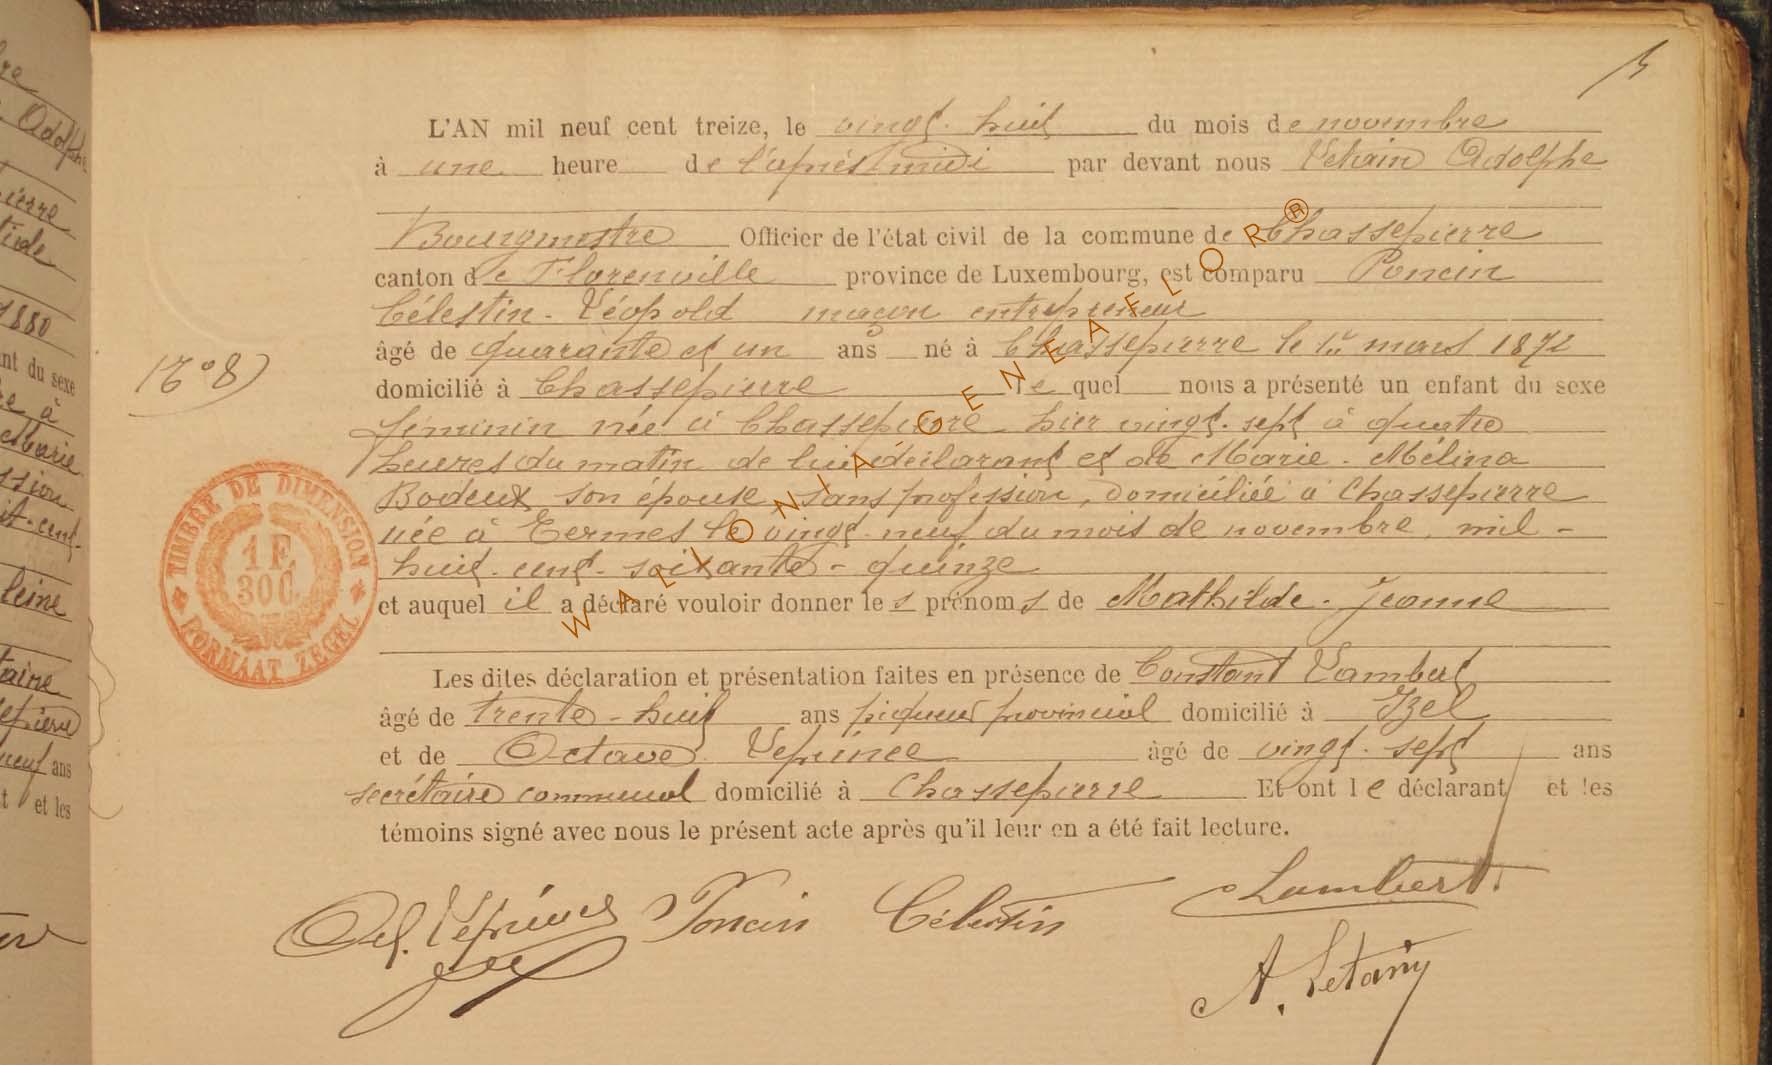 L'AN mil neuf cent treize, le vingt-huit du mois de novembre
à une heure de l'après midi par devant nous Letain Adolphe
Bourgmestre Officier de l'état civil de la commune de Chassepierre
canton de Florenville province de Luxembourg, est comparu Poncin
Célestin-Léopold maçon entrepreneur
âgé de quarante et un ans né à Chassepierre le 1er mars 1872
domicilié à Chassepierre le quel nous a présenté un enfant du sexe
N° 8
féminin née à Chassepierre hier vingt-sept à quatre
heures du matin de lui déclarant et de Marie-Mélina
Bodeux son épouse, sans profession, domiciliée à Chassepierre
née à Termes le vingt-neuf du mois de novembre mil-
huit-cent-soixante-quinze
et auquel il a déclaré vouloir donner les prénoms de Mathilde-Jeanne
Les dites déclaration et présentation faites en présence de Constant Lambert
âgé de trente-huit ans piqueur provincial domicilié à Izel
et de Octave Leprince âgé de vingt-sept ans
secrétaire communal domicilié à Chassepierre Et ont le déclarant et les
témoins signé avec nous le présent acte après qu'il leur en a été fait lecture.
Poncin Célestin Lambert
A. Letain
TIMBRE DE DIMENSION
1 F.
30 C.
FORMAAT ZEGEL
WALLONIA GENEAFLOR®